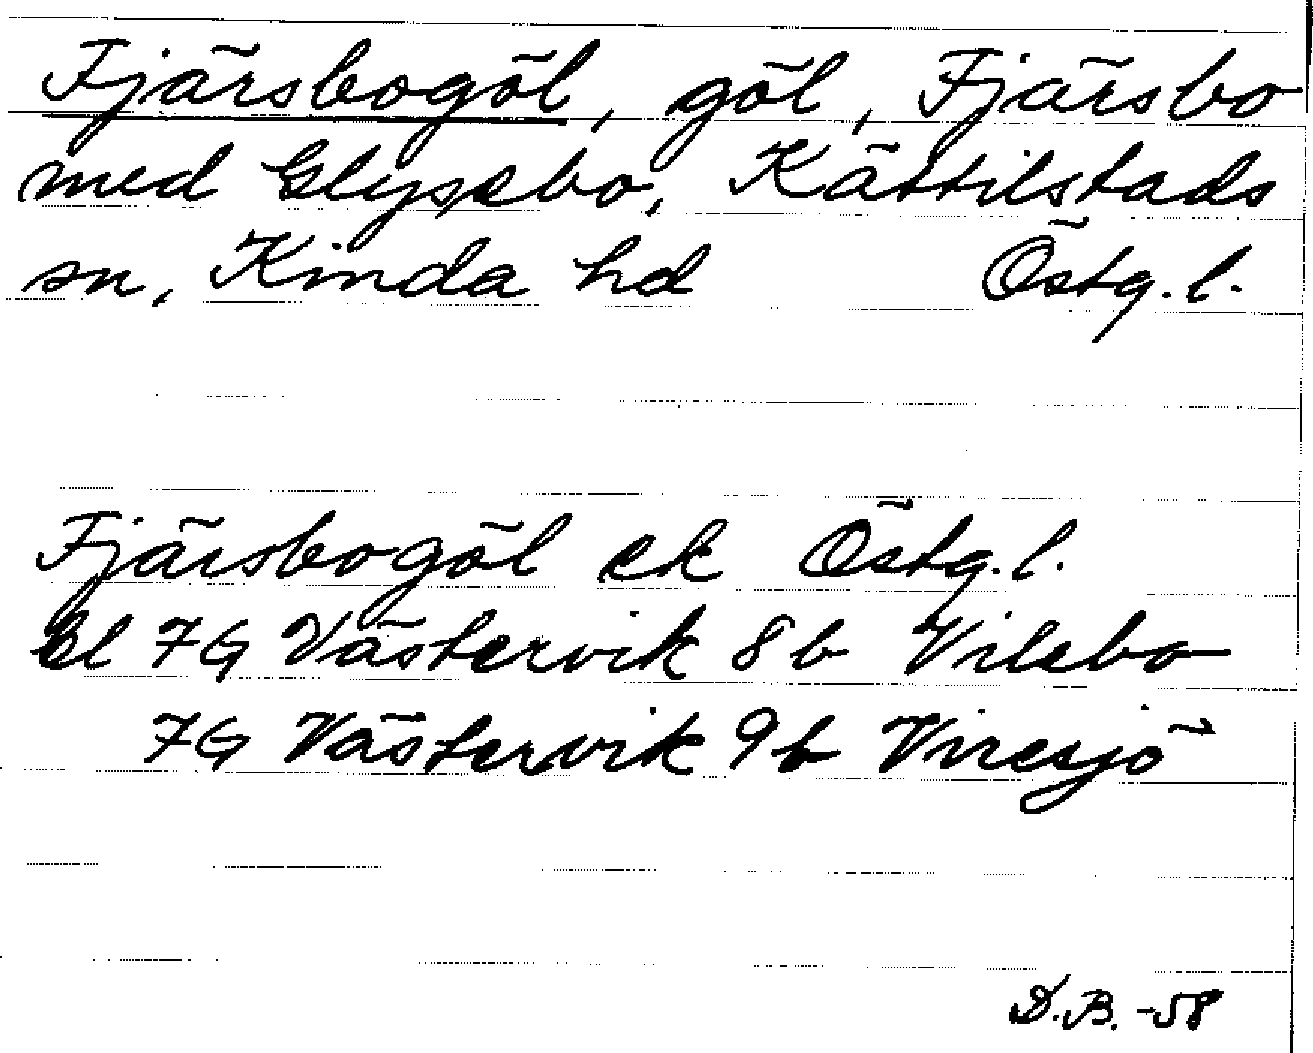 Fjärsbogöl, göl, Fjärsbo
med Glysebo, Kättilstads
sn, Kinda hd Östg. l.
Fjärsbogöl ek Östg. l.
Bl 7G Västervik 8b Vilebo
7G Västervik 9b Viresjö
D.B. -58